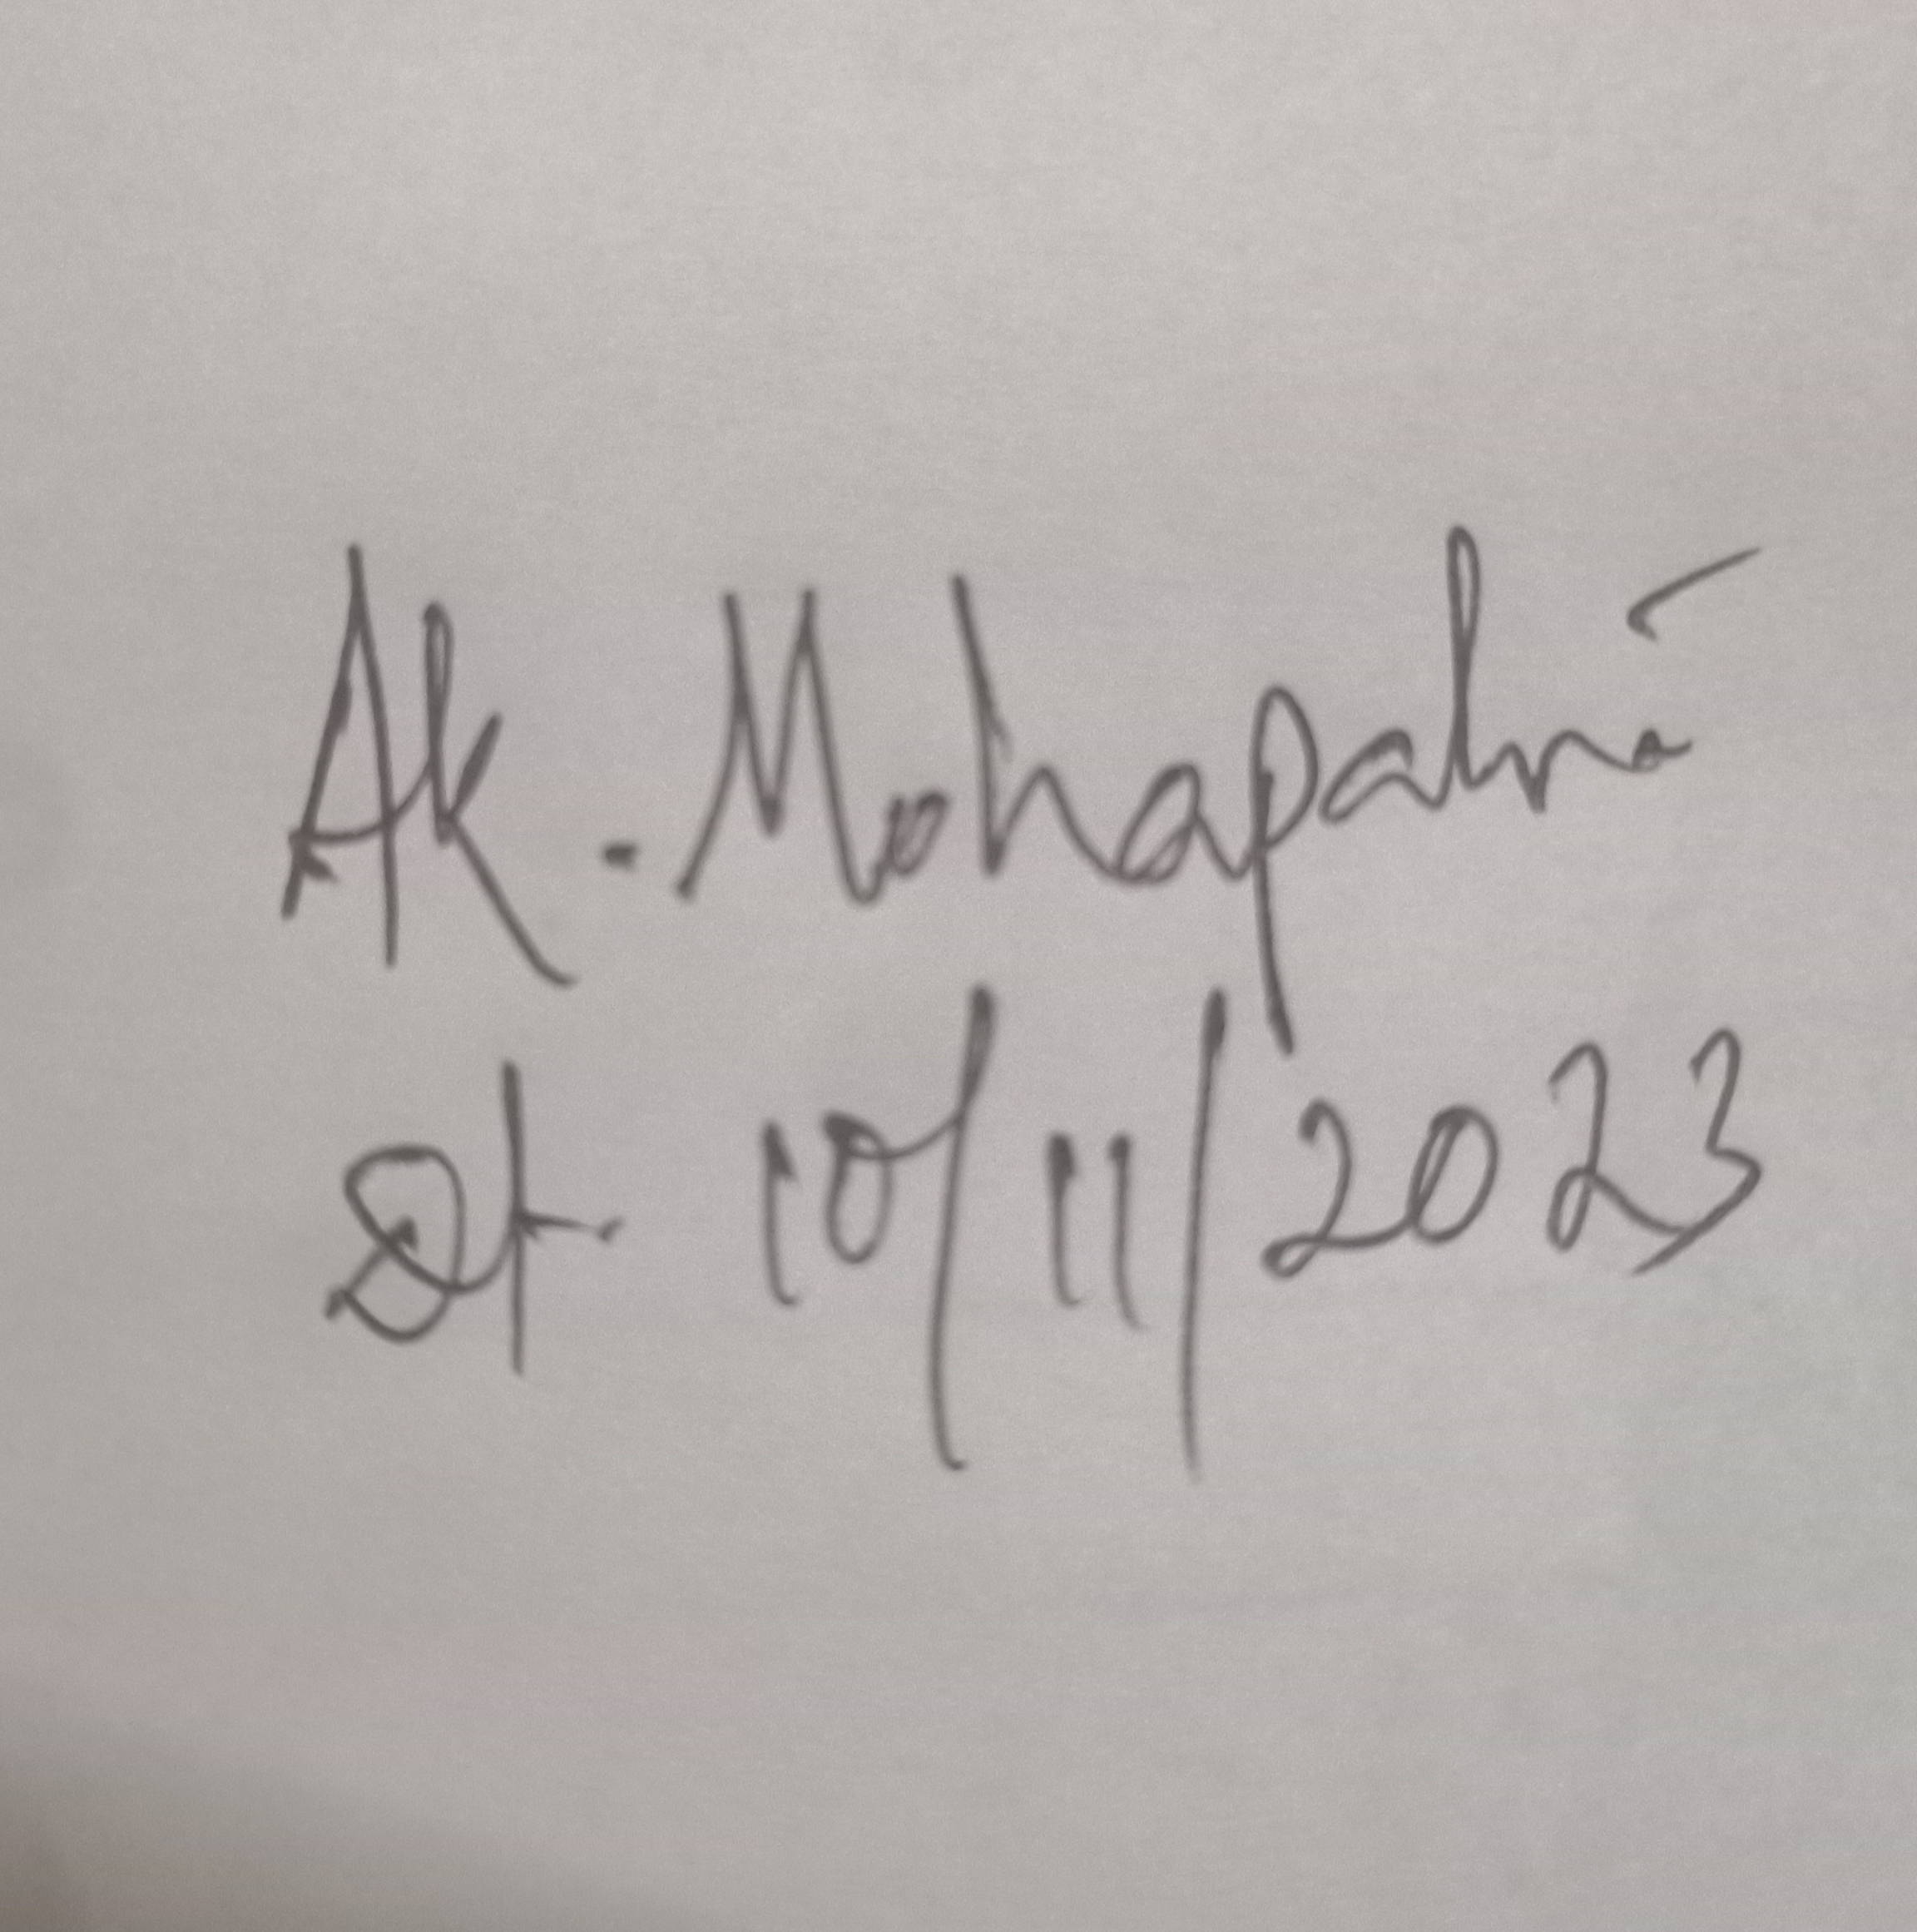 Ak. Mohapatra
Dt 10/11/2023